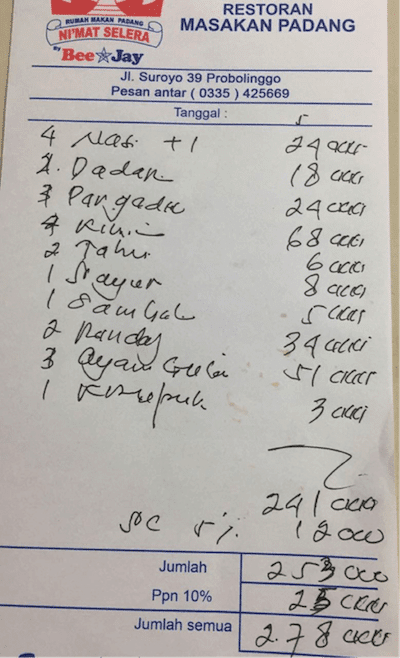 RESTORAN
MASAKAN PADANG
RUMAH MAKAN PADANG
NI'MAT SELERA
By Bee Jay
Jl. Suroyo 39 Probolinggo
Pesan antar ( 0335 ) 425669
Tanggal :
4 Nasi +1 24 000
2 Dadar 18 000
3 24 000
4 68 000
2 Tahu 6 000
1 Sayur 8 000
1 Sambal 5 000
2 34 000
3 Ayam Gulai 51 000
1 Krupuk 3 000
241 000
SC 5% 12 000
Jumlah 253 000
Ppn 10% 25 000
Jumlah semua 2.78 000